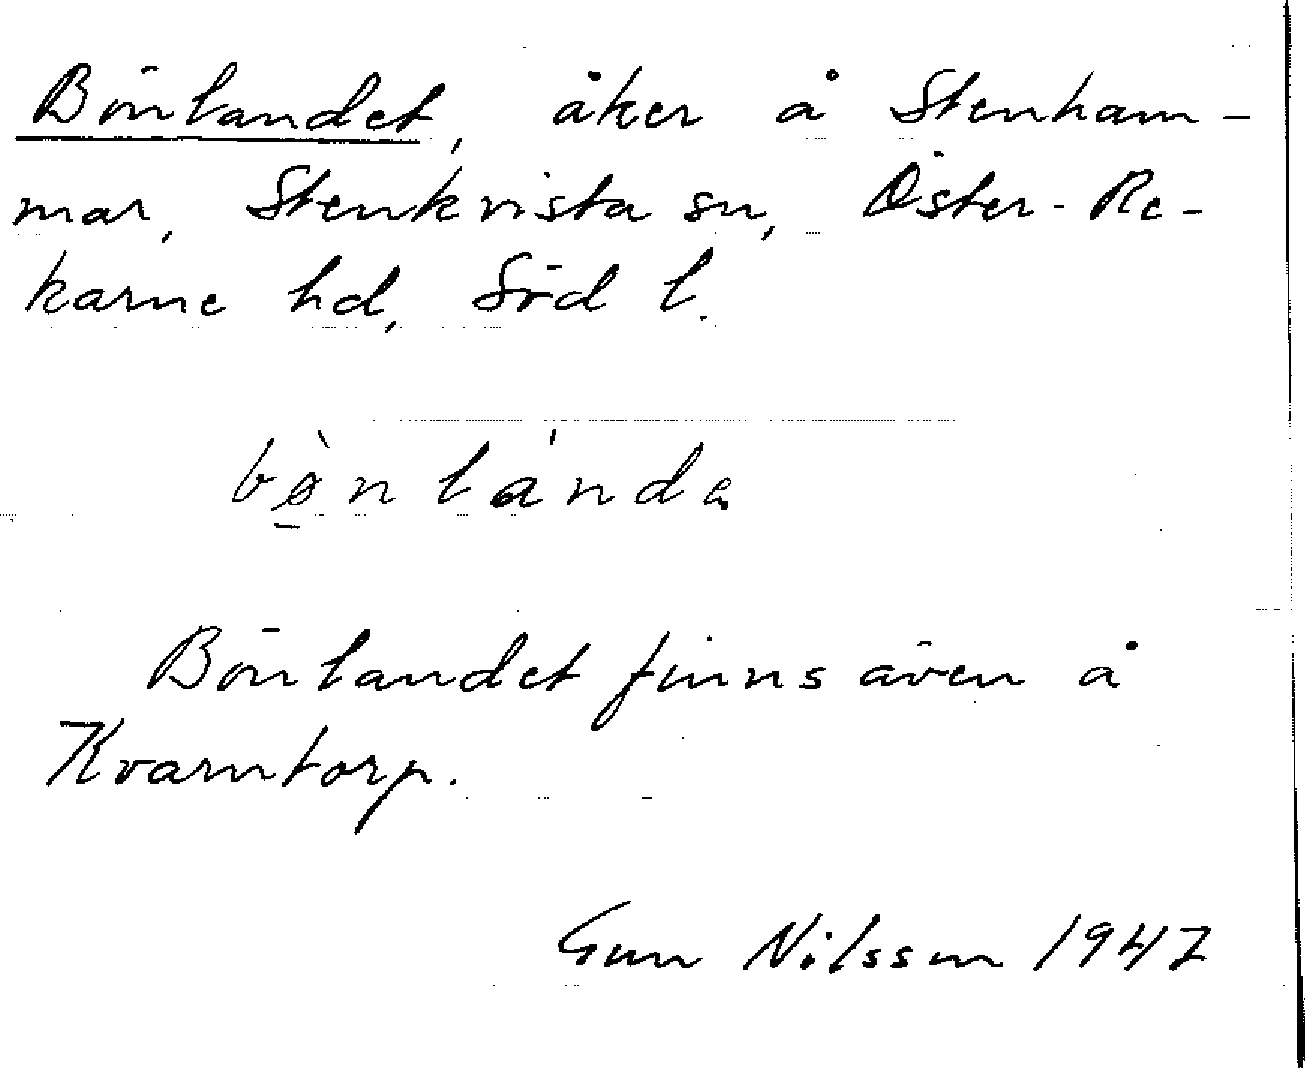 Bönlandet, åker å Stenham-
mar, Stenkvista sn, Öster-Re-
karne hd, Söd l.
bø̱̀nlánda
Bönlandet finns även å
Kvarntorp.
Gun Nilsson 1947